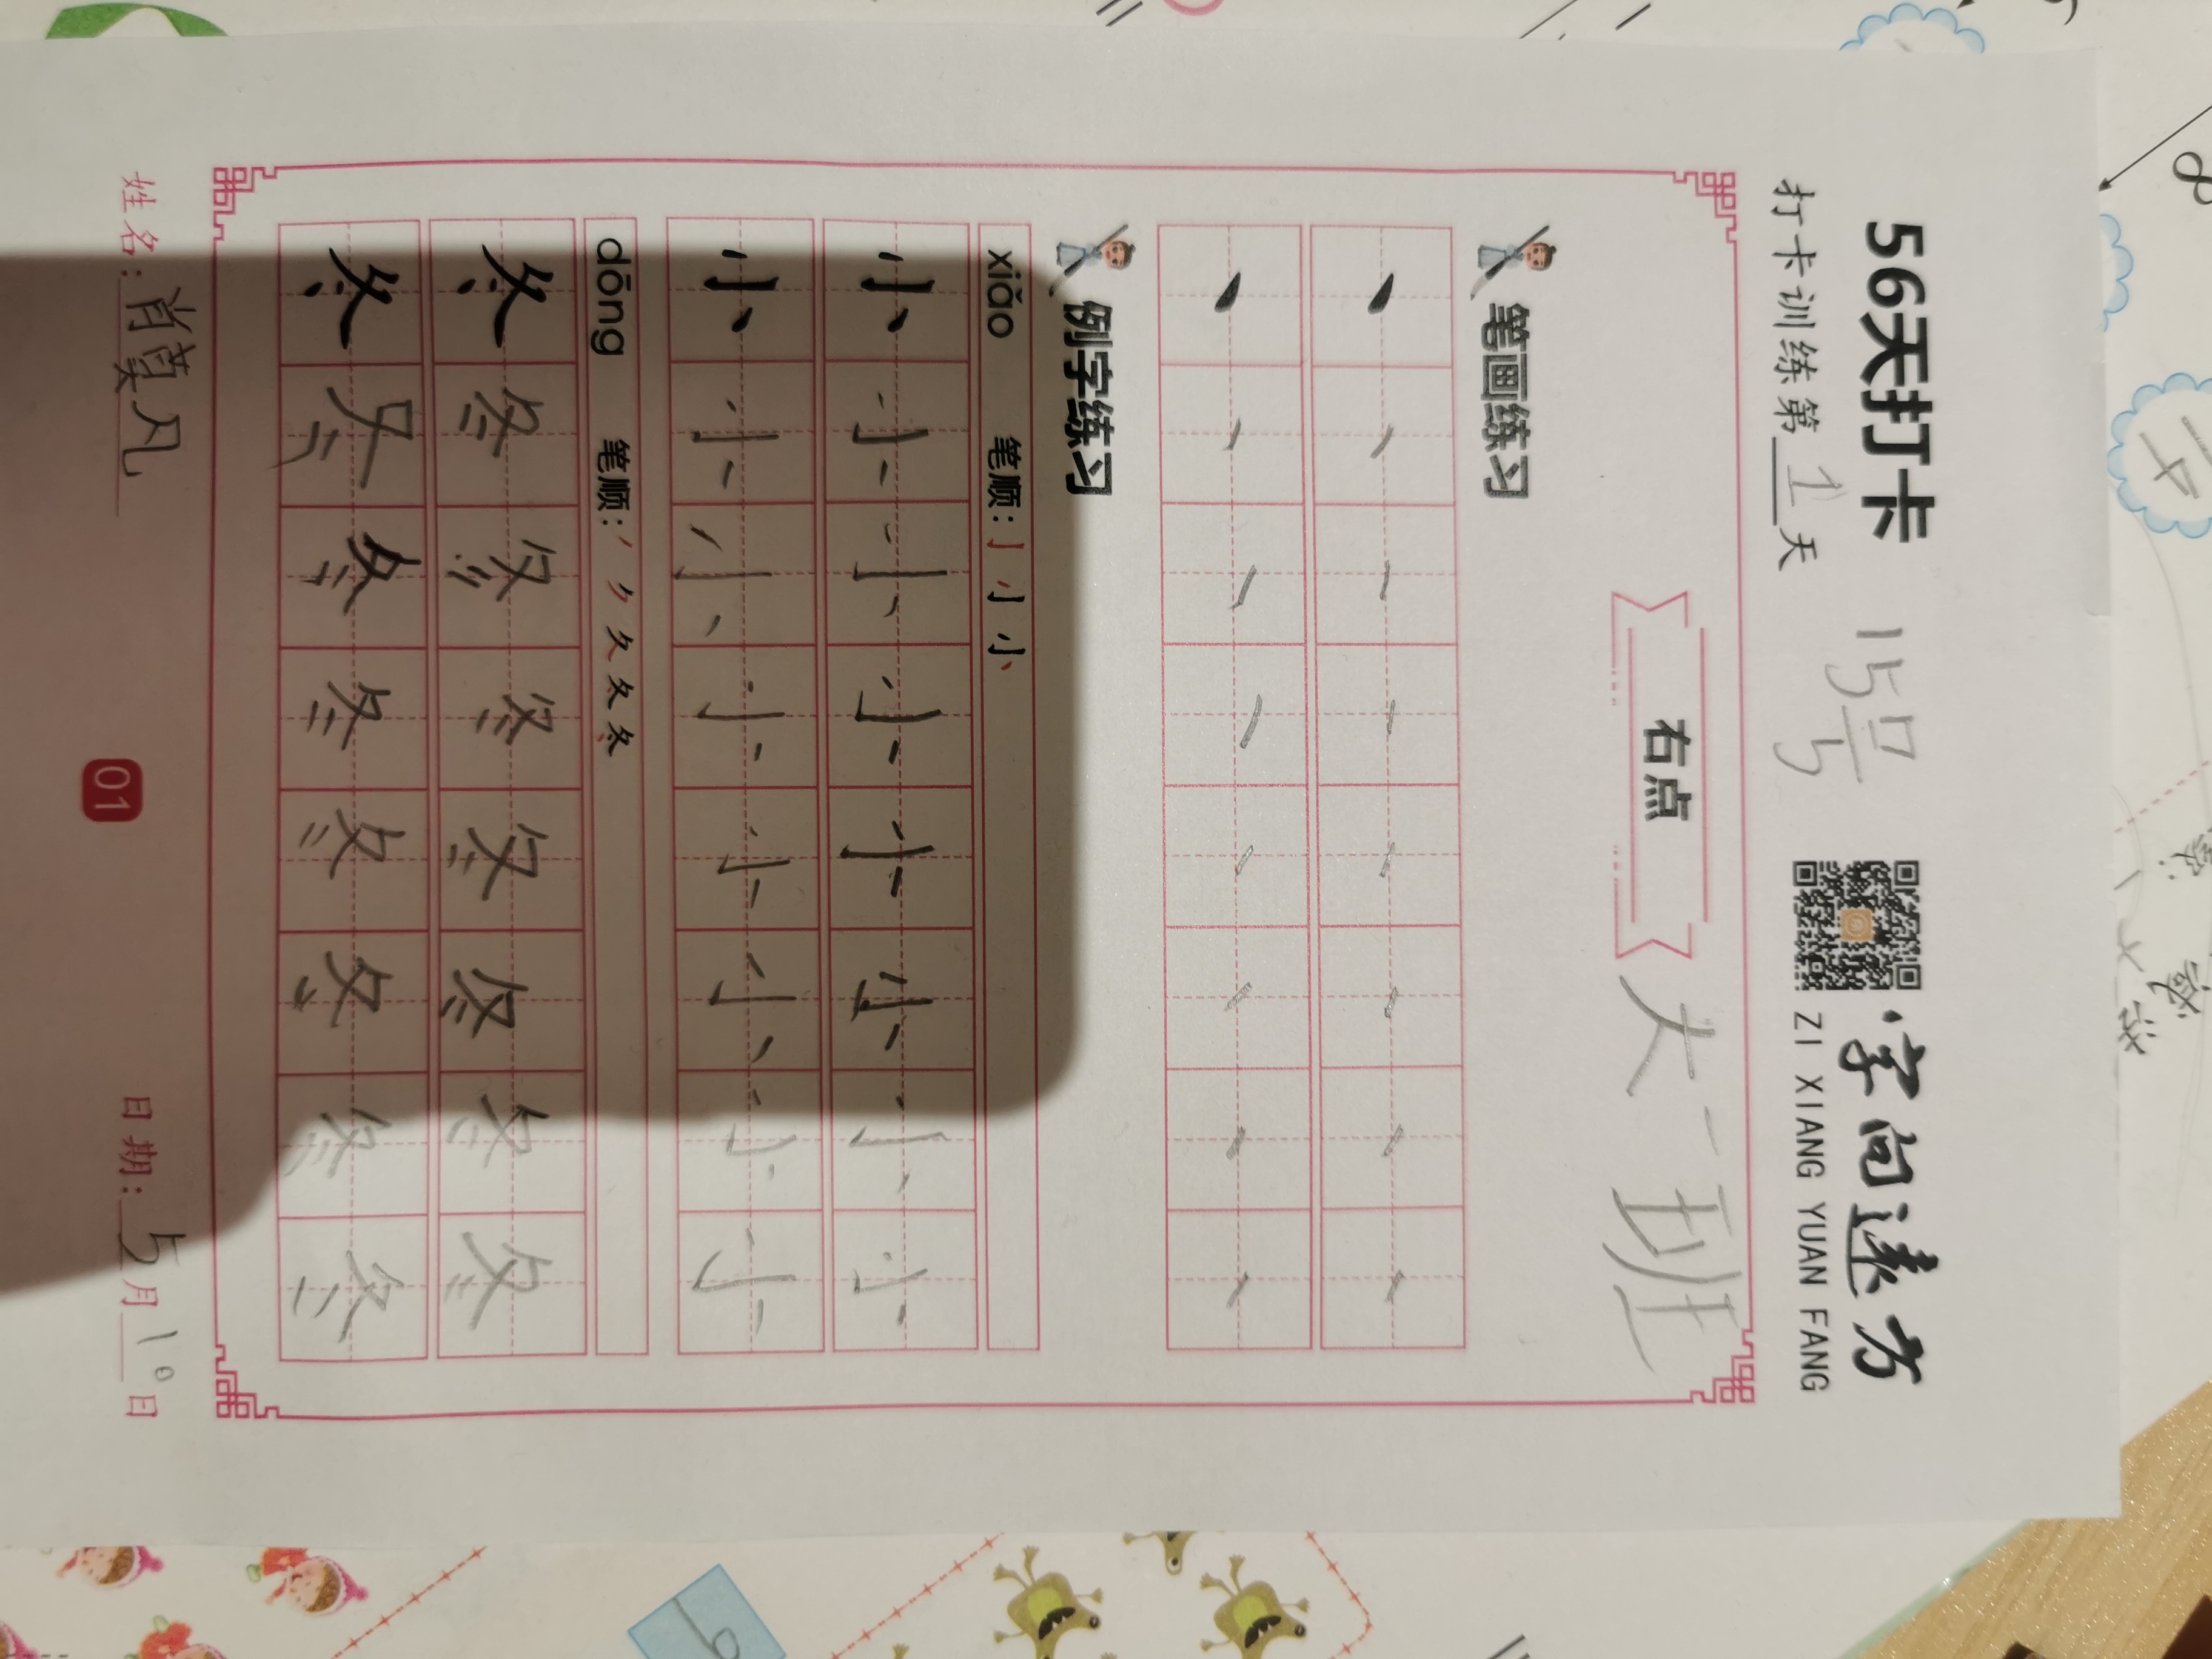 56天打卡 15号
字向遠方
打卡训练第1天
ZI XIANG YUAN FANG
右点
大一班
笔画练习
例字练习
xiǎo 笔顺：亅 小 小
小 小 小 小 小 小 小 小
小 小 小 小 小 小 小 小
dōng 笔顺：丿 ク 夂 冬 冬
冬 冬 冬 冬 冬 冬 冬 冬
冬 冬 冬 冬 冬 冬 冬 冬
姓名：肖蓂凡 日期：5月10日
01